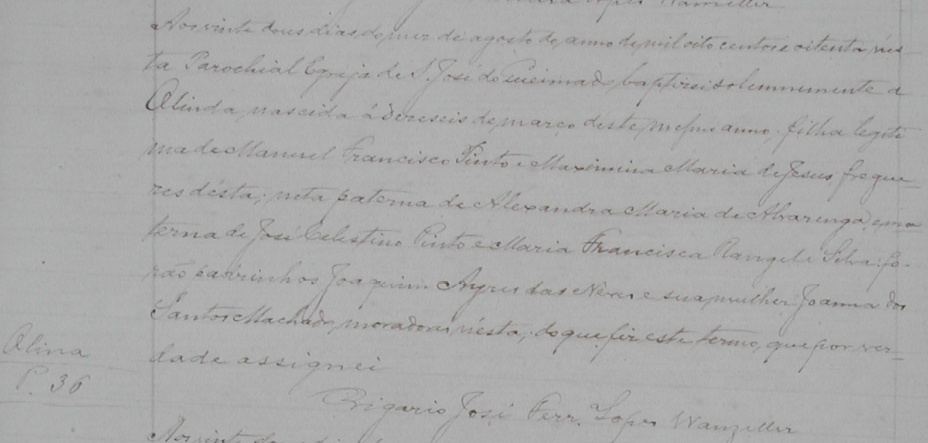 Lopes Wanzeller
Aos vinte dous dias do mez de agosto do anno de mil oito centos e oitenta nes
ta Parochial Egreja de S. José do Queimado, baptizei solemnemente a
Olinda, nascida á dezeseis de março deste mesmo anno, filha legiti
ma de Manuel Francisco Pinto e Maximina Maria de Jesus, fregue-
zes désta; neta paterna de Alexandra Maria de Alvarenga, e ma
terna de José Celestino Pinto e Maria Francisca Rangel e Silva: fo-
rão padrinhos Joaquim Ayres das Neves e sua mulher Joanna dos
Santos Machado, moradores n'esta; do que fiz este termo, que por ver-
dade assignei
Olina
P. 36
Vigario José Ferr. Lopes Wanzeller
Aos vinte